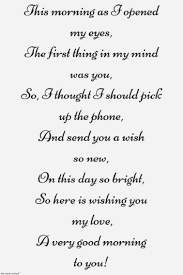 This morning as I opened
my eyes,
The first thing in my mind
was you,
So, I thought I should pick
up the phone,
And send you a wish
so new,
On this day so bright,
So here is wishing you
my love,
A very good morning
to you!